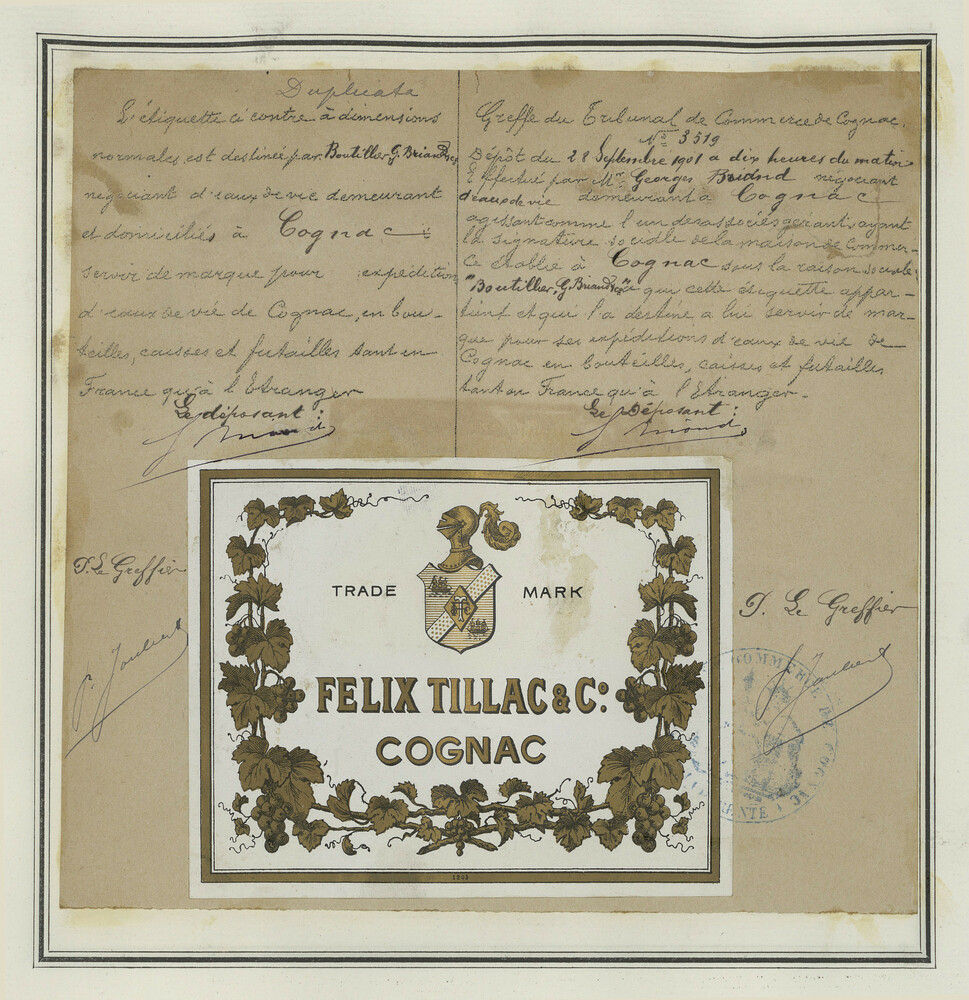 Duplicata
L'étiquette ci contre à dimensions
normales est destinée par Boutiller G. Briand & Cie
négociant d'eaux de vie demeurant
et domiciliés à Cognac
servir de marque pour expédition
d'eaux de vie de Cognac, en bou-
teilles, caisses et futailles tant en
France qu'à l'Etranger
Le déposant :
P. Le Greffier
P. Joubert
Greffe du Tribunal de Commerce de Cognac.
No 3519
Dépôt du 28 Septembre 1901 à dix heures du matin
Effectué par Mr Georges Briand négociant
d'eaux de vie demeurant à Cognac
agissant comme l'un des associés gérants ayant
la signature sociale de la maison de commer-
ce établie à Cognac sous la raison sociale
"Boutiller, G. Briand & Cie" que cette étiquette appar-
tient et qui l'a destiné a lui servir de mar-
que pour ses expéditions d'eaux de vie de
Cognac en bouteilles, caisses et futailles
tant en France qu'à l'Etranger.
Le Déposant :
P. Le Greffier
Joubert
TRADE MARK
FELIX TILLAC & Co:
COGNAC
COMMERCE DE COGNAC